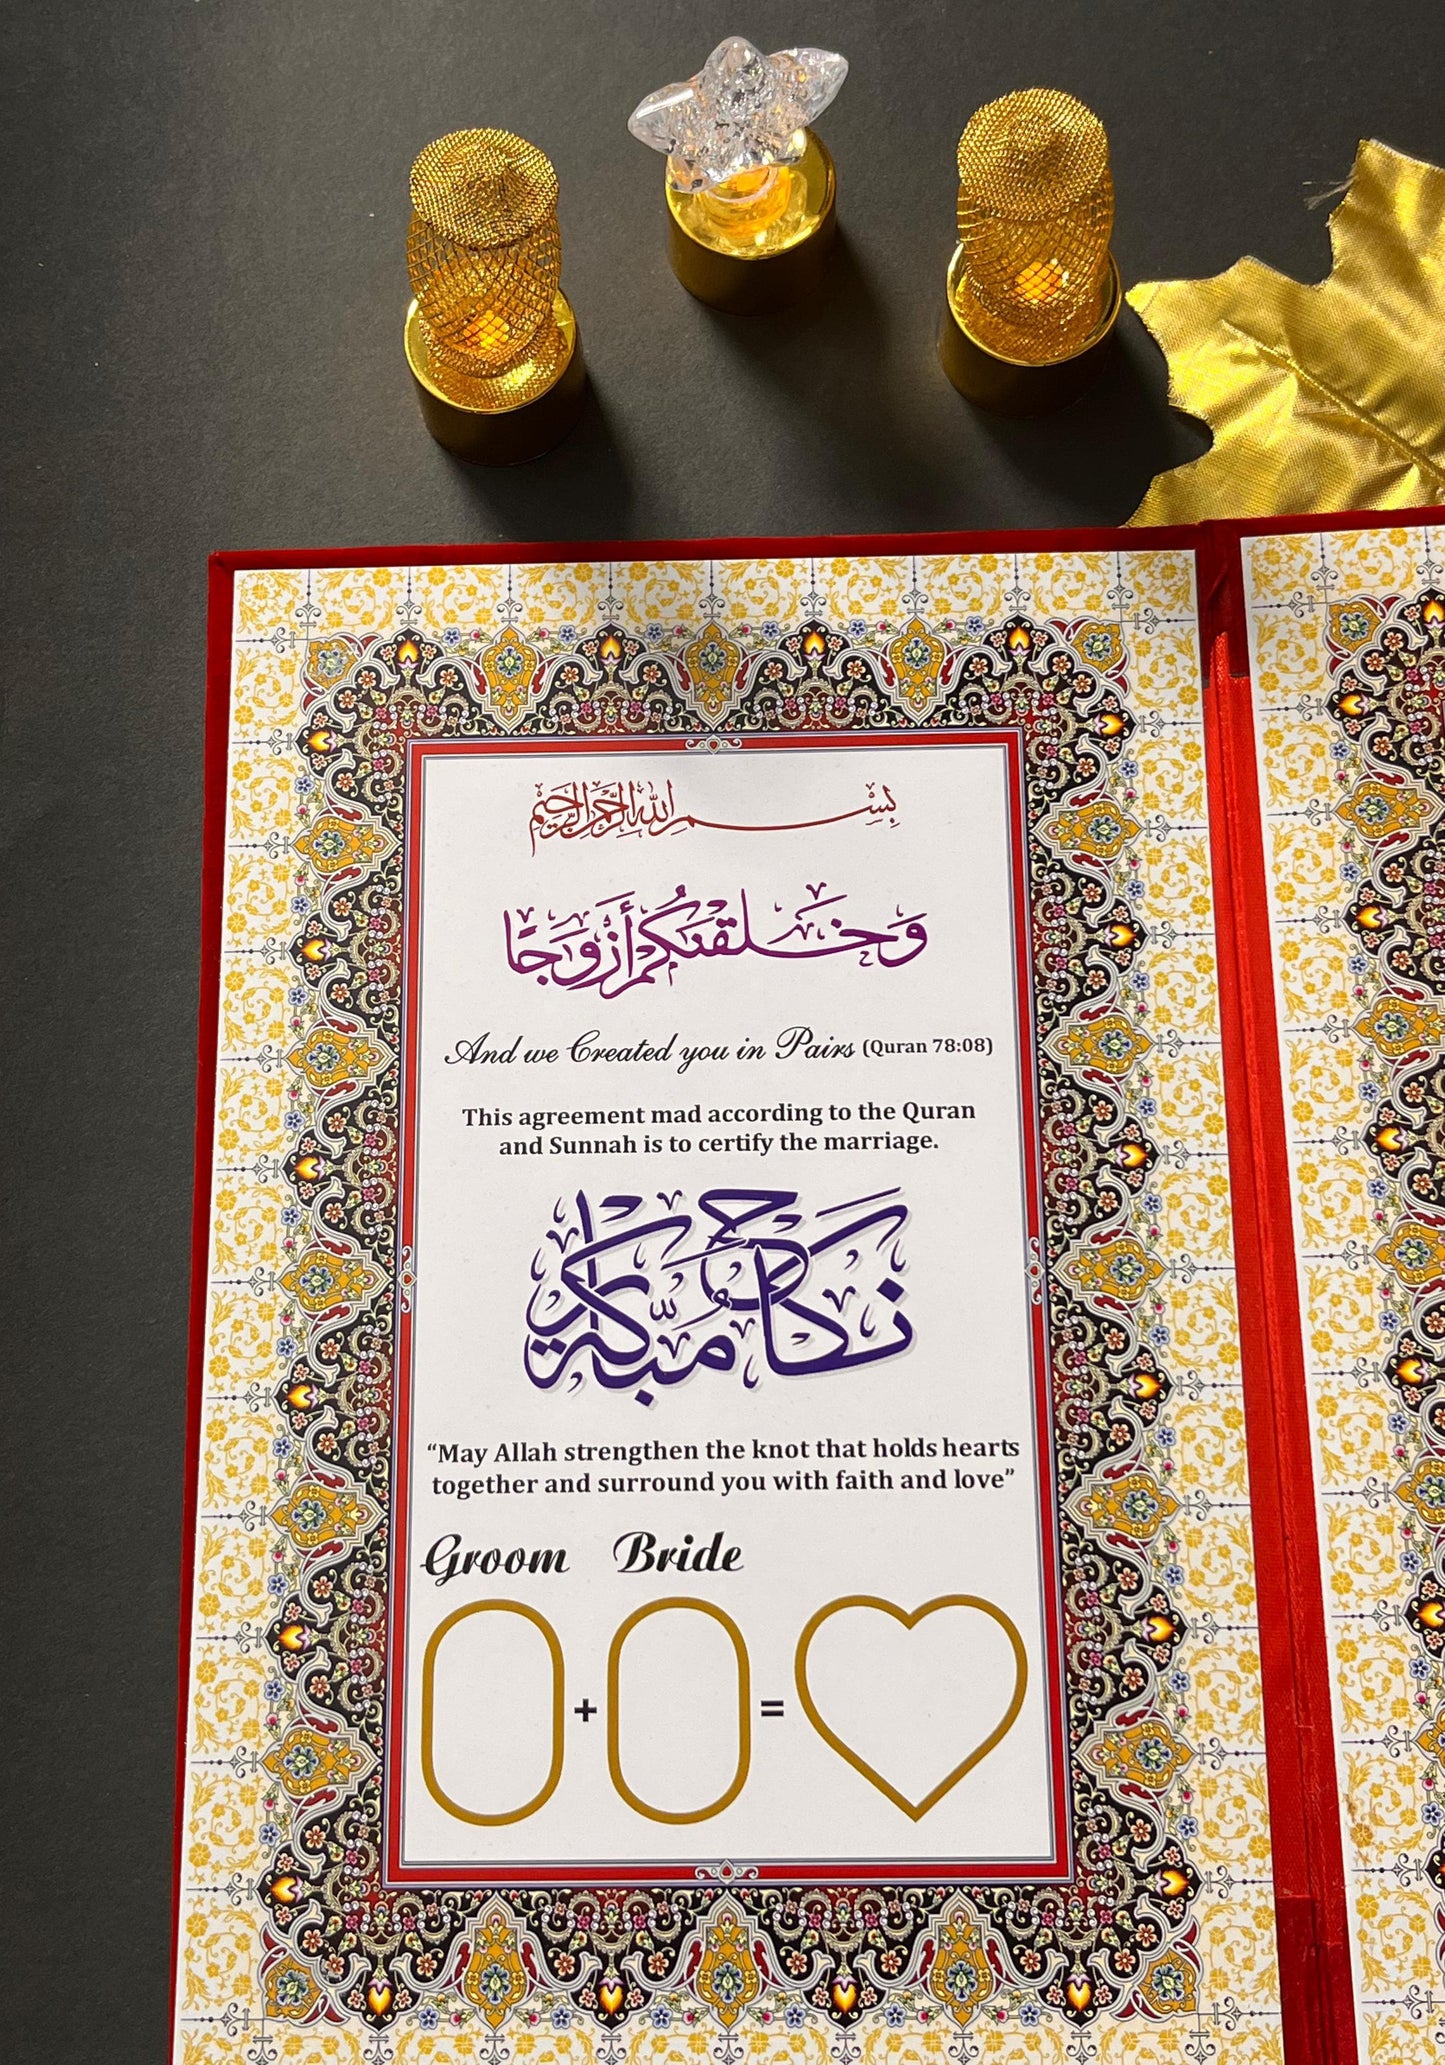 بسم الله الرحمن الرحيم
وَخَلَقْنَٰكُمْ أَزْوَٰجًا
And we Created you in Pairs (Quran 78:08)
This agreement mad according to the Quran
and Sunnah is to certify the marriage.
نكاح مبارك
“May Allah strengthen the knot that holds hearts
together and surround you with faith and love”
Groom Bride
+ =